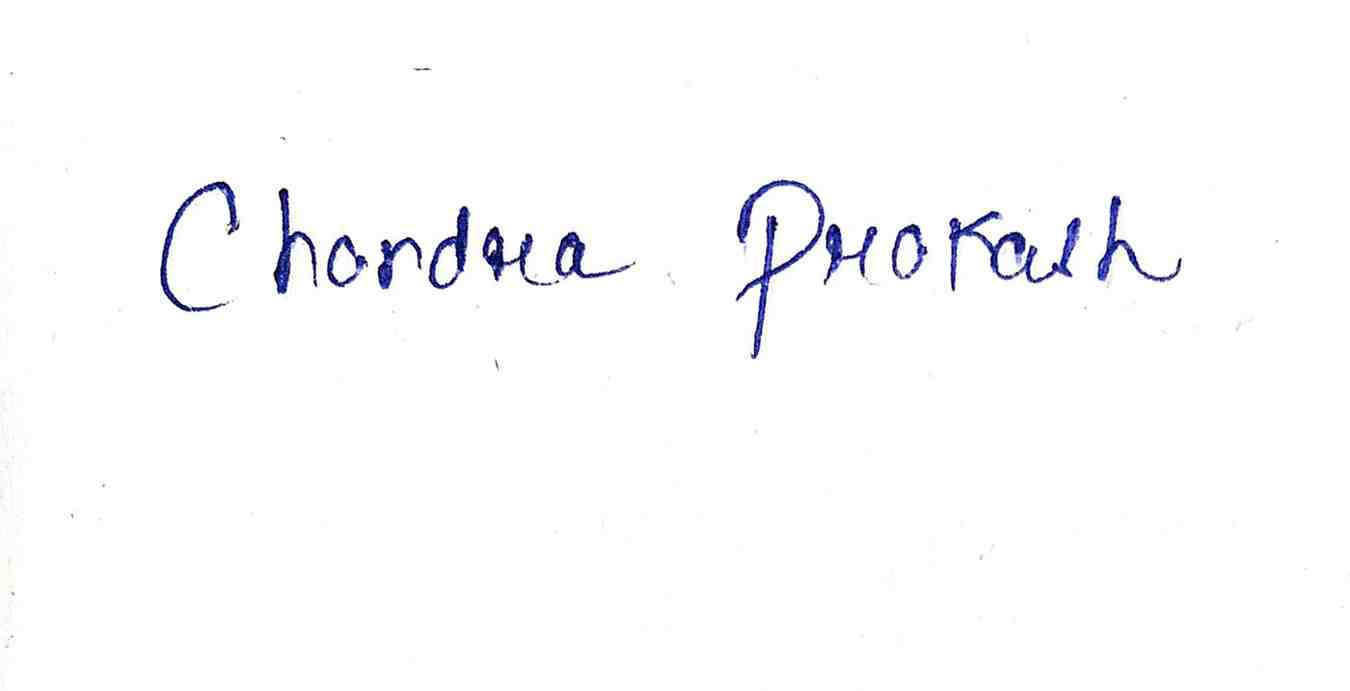 Chandra Prakash